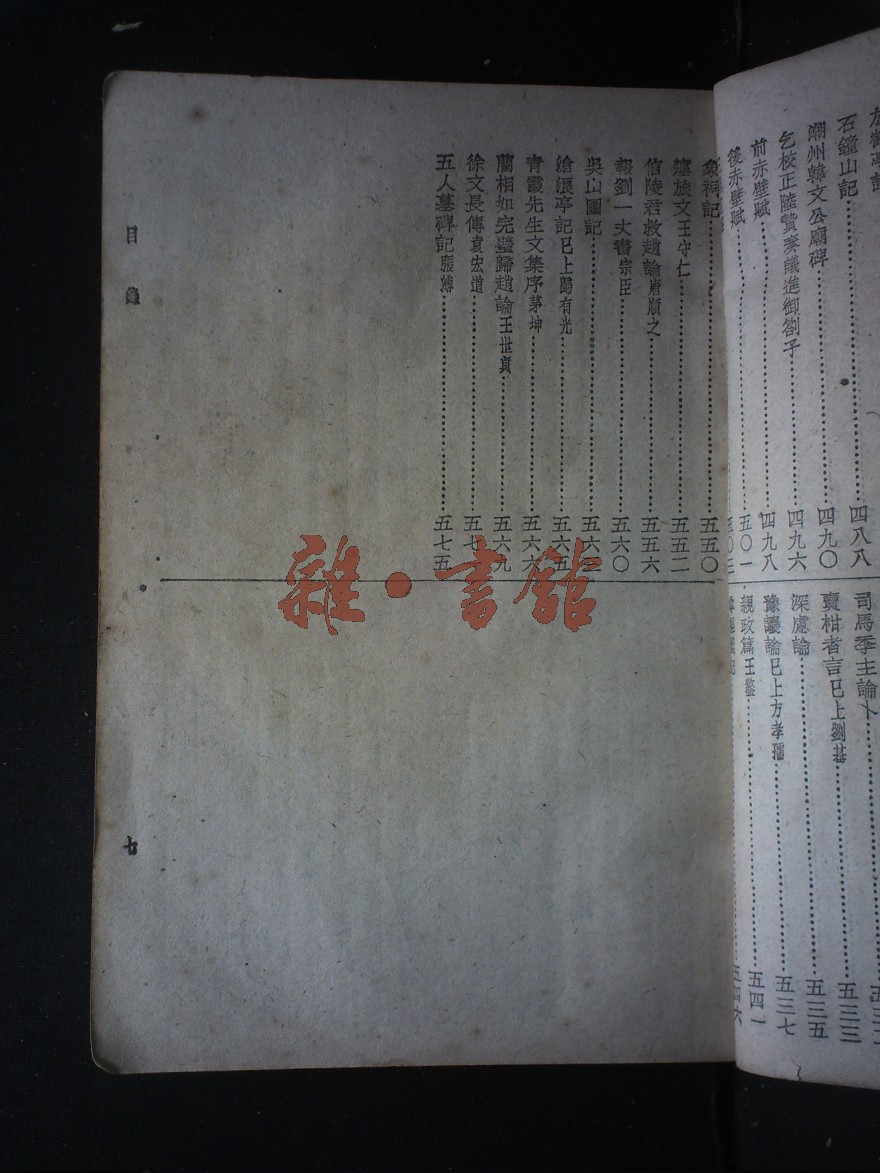 石鐘山記 四八八
潮州韓文公廟碑 四九〇
乞校正陸贄奏議進御劄子 四九六
前赤壁賦 四九八
後赤壁賦
司馬季主論卜
賣柑者言已上劉基 五三三
深慮論 五三五
豫讓論已上方孝孺 五三七
親政篇王鏊 五四一
五四六
象祠記 五五〇
瘞旅文王守仁 五五二
信陵君救趙論唐順之 五五六
報劉一丈書宗臣 五六〇
吳山圖記
滄浪亭記已上歸有光 五六五
青霞先生文集序茅坤 五六六
藺相如完璧歸趙論王世貞 五六九
徐文長傳袁宏道
五人墓碑記張溥 五七五
目錄
七
雜·書館